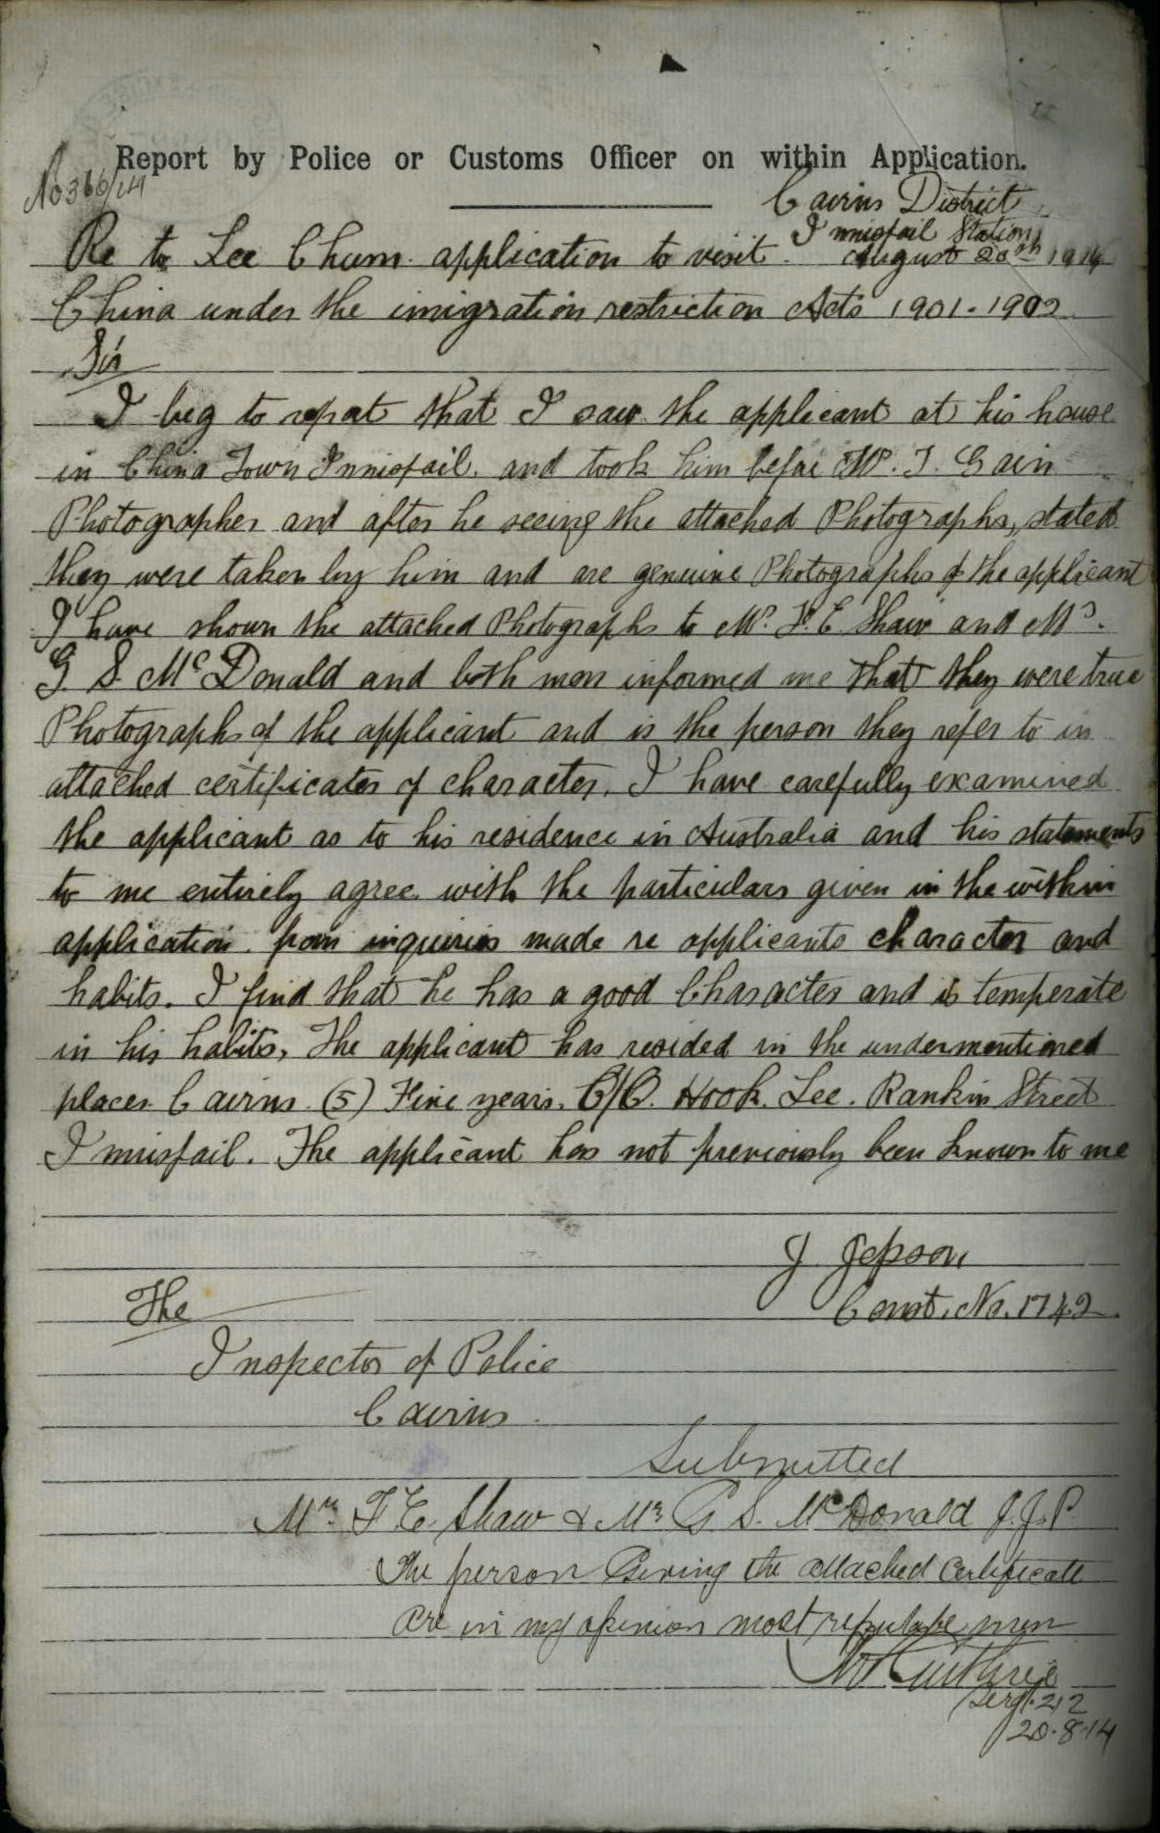 Report by Police or Customs Officer on within Application.
No 366/14
Cairns District
Innisfail Station
August 20th 1914
Re to Lee Chum. application to visit
China under the imigration restriction Acts 1901-1902
Sir
I beg to repot that I saw the applicant at his house
in China Town Innisfail. and took him befor Mr. T. Gain
Photographer and after he seeing the attached Photographs, stated
they were taken by him and are genuine Photographs of the applicant
I have shown the attached Photographs to Mr. F. E. Shaw and Mr.
G. S. McDonald and both men informed me that they were true
Photographs of the applicant and is the person they refer to in
attached certificates of character. I have carefully examined
the applicant as to his residence in Australia and his statements
to me entirely agree with the particulars given in the within
application. from inquiries made re applicants character and
habits. I find that he has a good Character and is temperate
in his habits, The applicant has resided in the undermentioned
places Cairns (5) Five years. C/O. Hook. Lee. Rankin Street
Innisfail. The applicant has not previously been known to me
J. Jepson
Const. No. 1742
The
Inspector of Police
Cairns.
Submitted
Mr. F E. Shaw & Mr G S. McDonald J.J.P
The person Giving the attached Certificate
are in my opinion most men
Sergt. 212
20-8-14